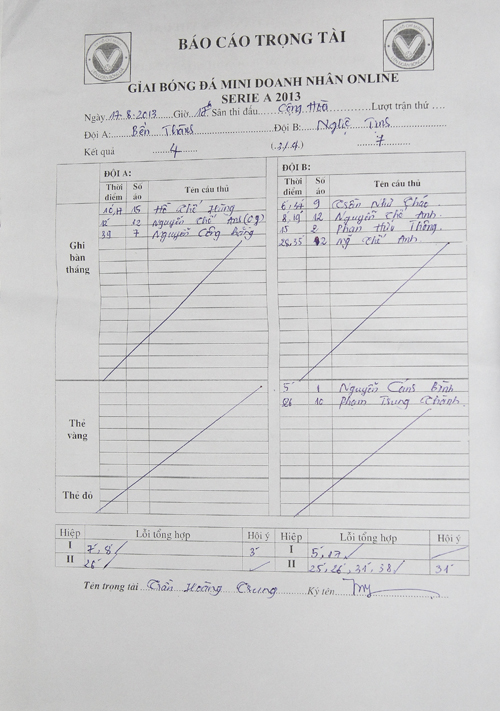 BÁO CÁO TRỌNG TÀI
GIẢI BÓNG ĐÁ MINI DOANH NHÂN ONLINE
SERIE A 2013
Ngày 17-8-2013 Giờ Sân thi đấu Cộng Hoà Lượt trận thứ
Đội A: Bến Thành Đội B: Nghệ Tĩnh
Kết quả 4 (3/4) 7
ĐỘI A: ĐỘI B:
Thời điểm Số áo Tên cầu thủ Thời điểm Số áo Tên cầu thủ
Ghi bàn thắng
15 Hồ Chế Hùng 9 Trần Như
12 12 Nguyễn Chế Anh (Og) 8,19 12 Nguyễn Chế Anh
39 7 Nguyễn Công 15 2 Phan Hữu Thông
28,35 12 Ng Chế Anh
Thẻ vàng
5 1 Nguyễn Công Bình
26 10 Phạm Trung Chánh
Thẻ đỏ
Hiệp Lỗi tổng hợp Hội ý Hiệp Lỗi tổng hợp Hội ý
I 7,8 3 I 5,17
II 26 II 25,26,31,38 31
Tên trọng tài Trần Hoàng Trung Ký tên